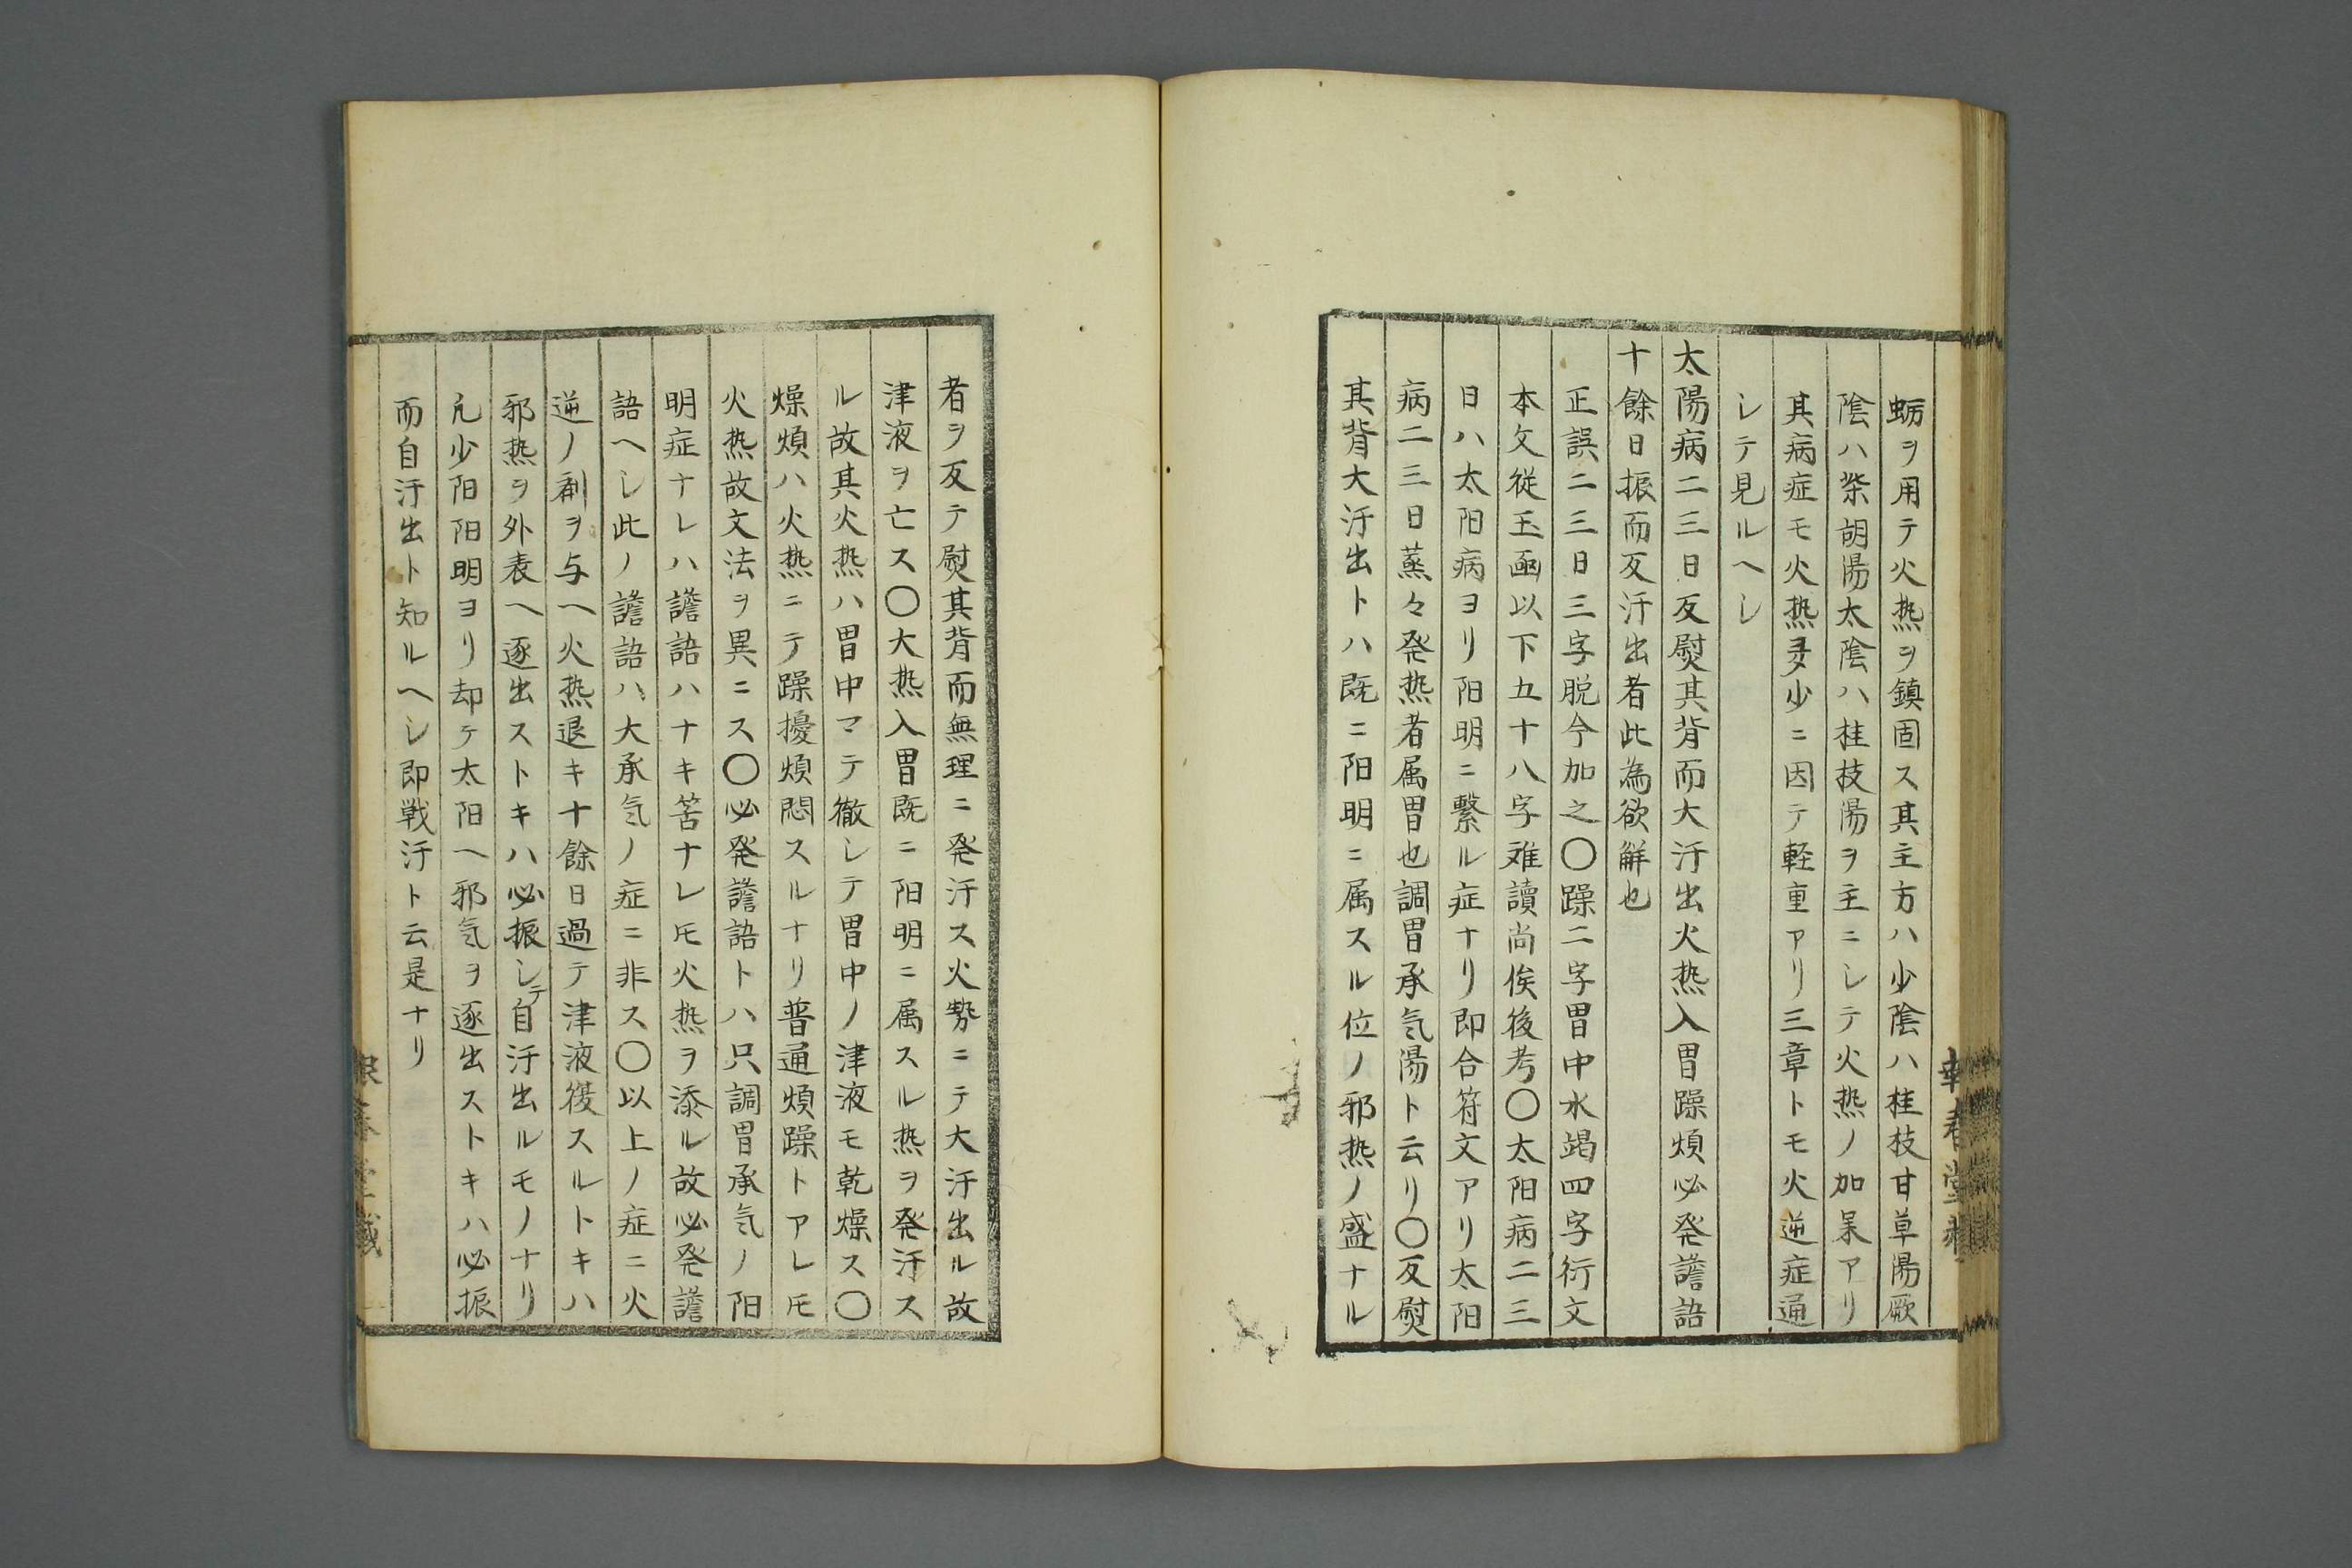 蛎ヲ用テ火热ヲ鎮固ス其主方ハ少陰ハ桂枝甘草湯厥
陰ハ柴胡湯太陰ハ桂枝湯ヲ主ニシテ火热ノ加杲アリ
其病症モ火热多少ニ因テ軽重アリ三章トモ火逆症通
シテ見ルヘシ
太陽病二三日反熨其背而大汗出火热入胃躁煩必発譫語
十餘日振而反汗出者此為欲解也
正誤二三日三字脱今加之〇躁二字胃中水竭四字衍文
本文従玉函以下五十八字难讀尚俟後考〇太阳病二三
日ハ太阳病ヨリ阳明ニ繋ル症ナリ即合符文アリ太阳
病二三日蒸々発热者属胃也調胃承気湯ト云リ〇反熨
其背大汗出トハ既ニ阳明ニ属スル位ノ邪热ノ盛ナル
者ヲ反テ熨其背而無理ニ発汗ス火勢ニテ大汗出ル故
津液ヲ亡ス〇大热入胃既ニ阳明ニ属スル热ヲ発汗ス
ル故其火热ハ胃中マテ徹シテ胃中ノ津液モ乾燥ス〇
燥煩ハ火热ニテ躁擾煩悶スルナリ普通煩躁トアレ𪜈
火热故文法ヲ異ニス〇必発譫語トハ只調胃承気ノ阳
明症ナレハ譫語ハナキ筈ナレ𪜈火热ヲ添ル故必発譫
語ヘシ此ノ譫語ハ大承気ノ症ニ非ス〇以上ノ症ニ火
逆ノ剤ヲ与ヘ火热退キ十餘日過テ津液復スルトキハ
邪热ヲ外表ヘ逐出ストキハ必振シテ自汗出ルモノナリ
凡少阳阳明ヨリ却テ太阳ヘ邪気ヲ逐出ストキハ必振
而自汗出ト知ルヘシ即戦汗ト云是ナリ